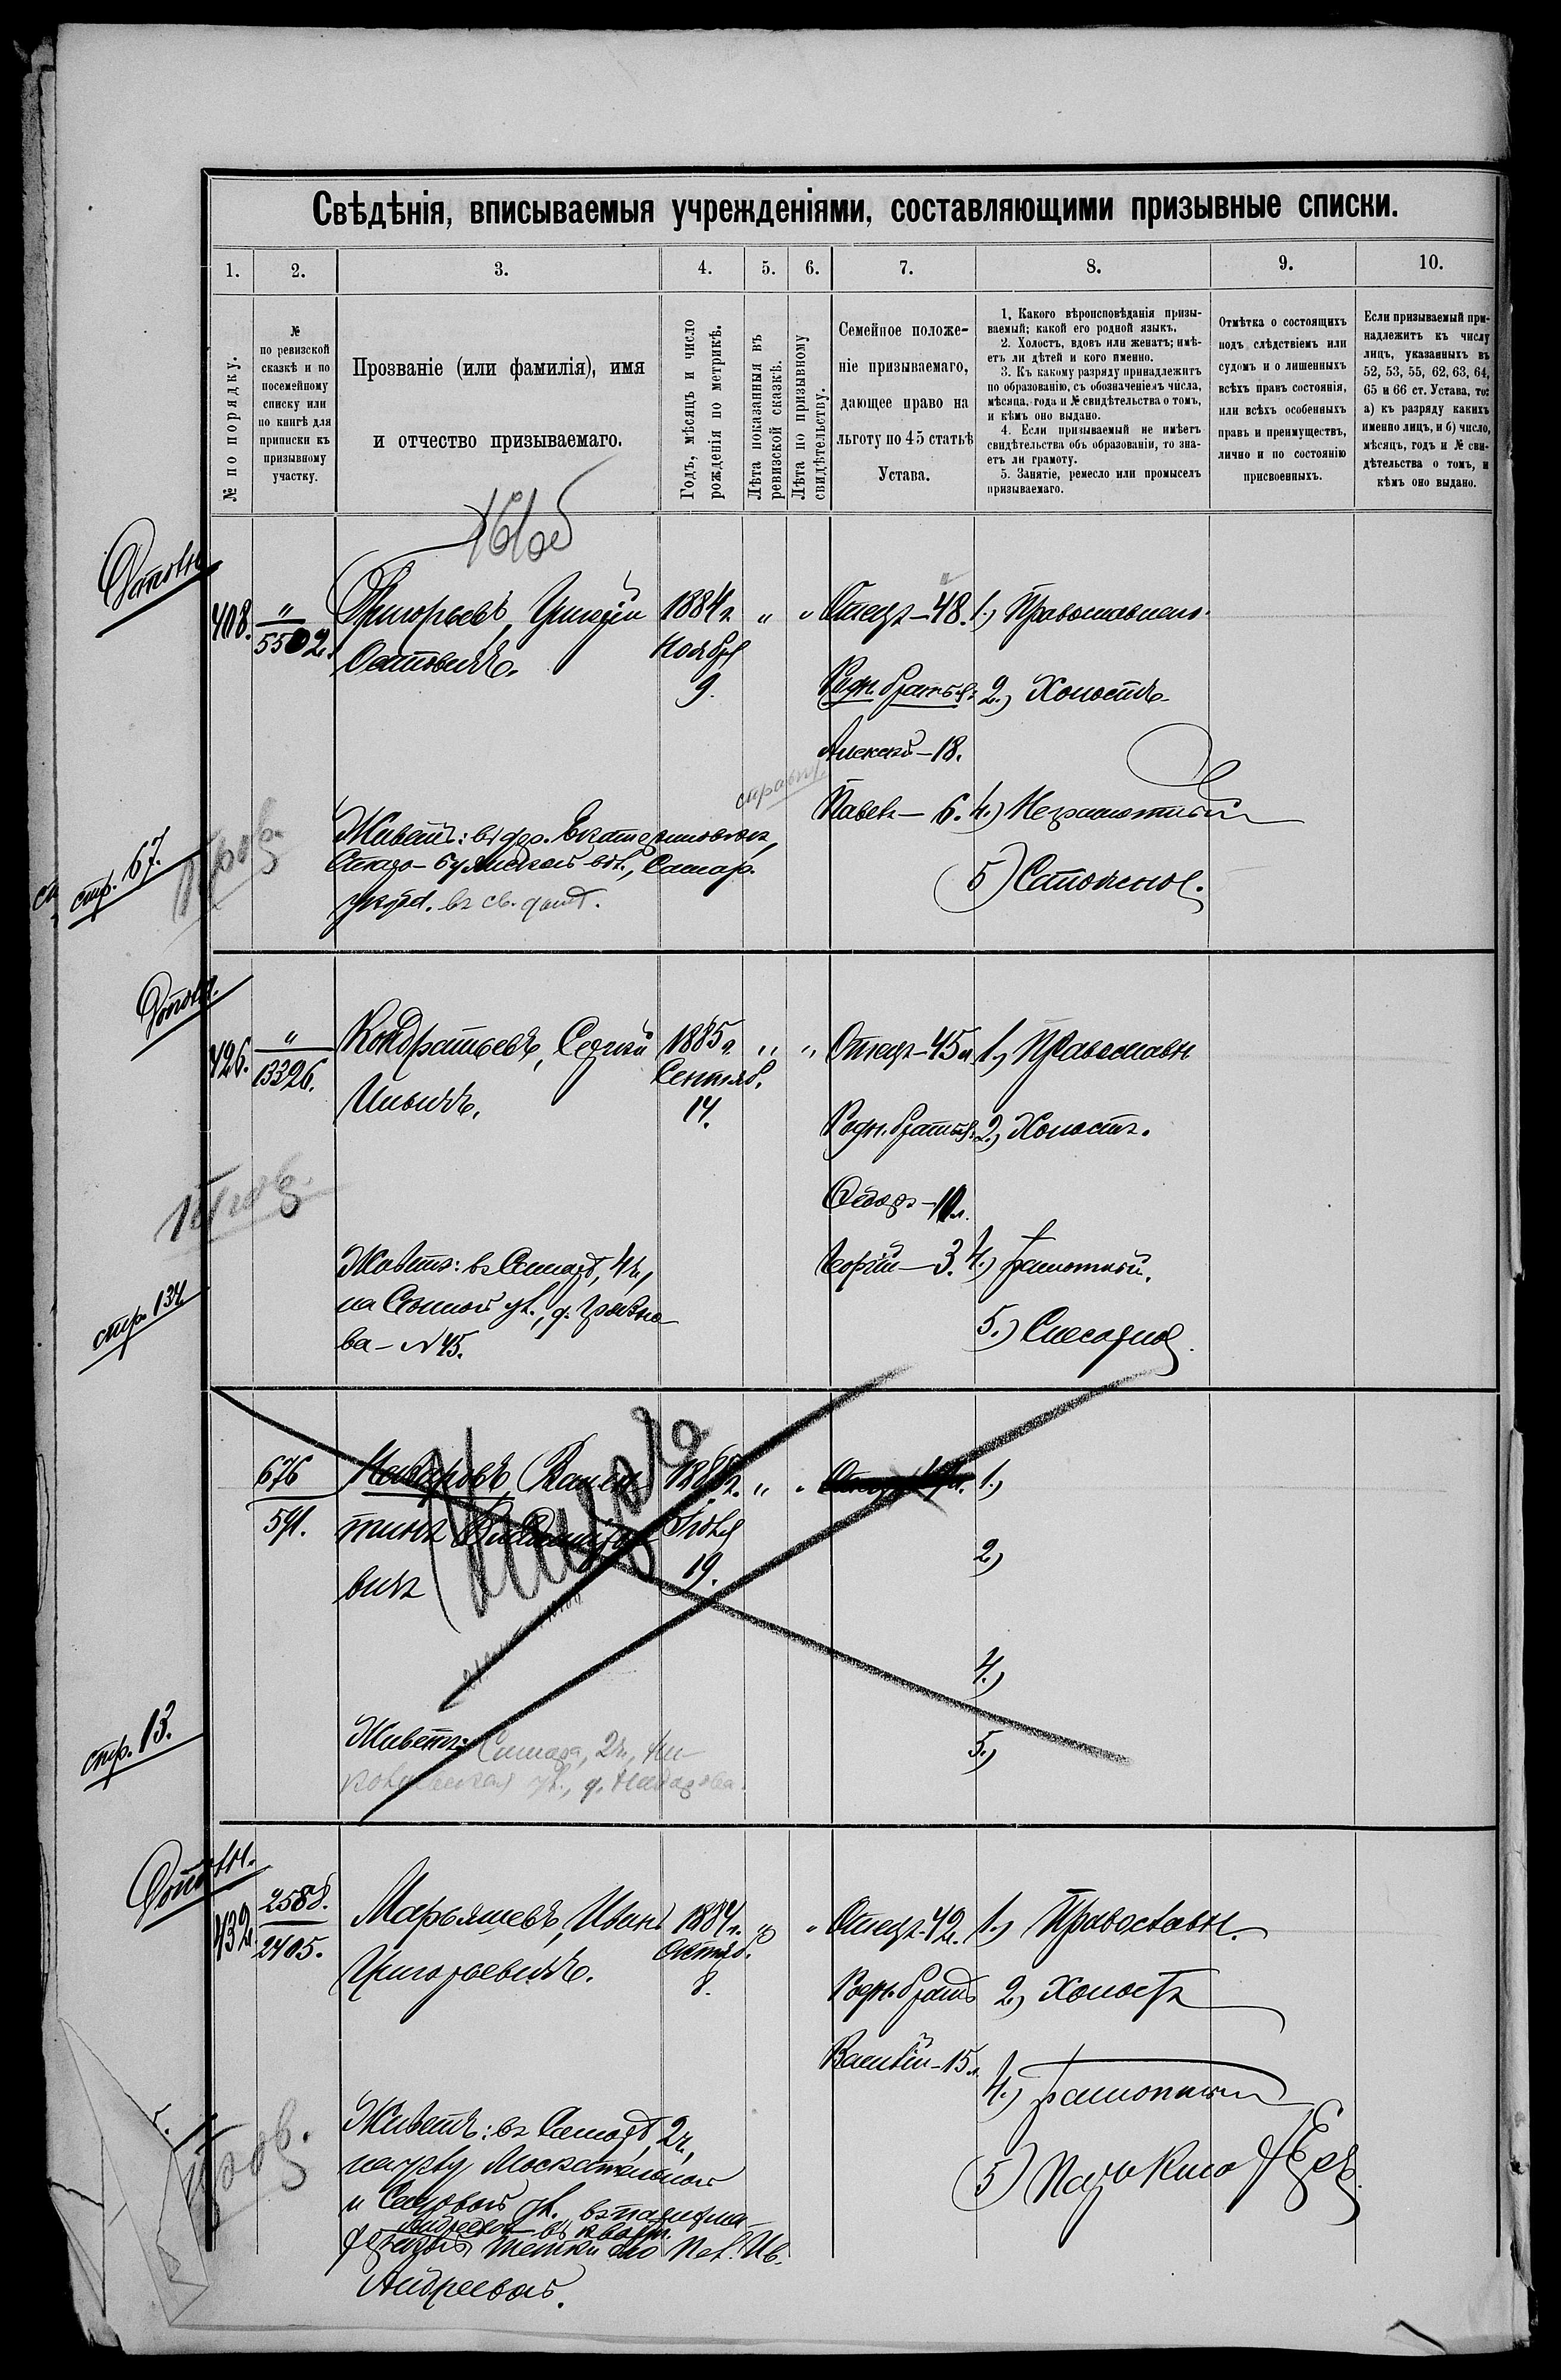 Свѣдѣнія, вписываемыя учрежденіями, составляющими призывные списки.
1. 2. 3. 4. 5. 6. 7. 8. 9. 10.
№ по порядку.
№ по ревизской сказкѣ и по посемейному списку или по книгѣ для приписки къ призывному участку.
Прозваніе (или фамилія), имя
и отчество призываемаго.
Годъ, мѣсяцъ и число
рожденія по метрикѣ.
Лѣта показанныя въ
ревизской сказкѣ.
Лѣта по призывному
свидѣтельству.
Семейное положе-
ніе призываемаго,
дающее право на
льготу по 45 статьѣ
Устава.
1. Какого вѣроисповѣданія призы-
ваемый; какой его родной языкъ.
2. Холостъ, вдовъ или женатъ; имѣ-
етъ ли дѣтей и кого именно.
3. Къ какому разряду принадлежитъ
по образованію, съ обозначеніемъ числа,
мѣсяца, года и № свидѣтельства о томъ,
и кѣмъ оно выдано.
4. Если призываемый не имѣетъ
свидѣтельства объ образованіи, то зна-
етъ ли грамоту.
5. Занятіе, ремесло или промыселъ
призываемаго.
Отмѣтка о состоящихъ
подъ слѣдствіемъ или
судомъ и о лишенныхъ
всѣхъ правъ состоянія,
или всѣхъ особенныхъ
правъ и преимуществъ,
лично и по состоянію
присвоенныхъ.
Если призываемый при-
надлежитъ къ числу
лицъ, указанныхъ въ
52, 53, 55, 62, 63, 64,
65 и 66 ст. Устава, то:
а) къ разряду какихъ
именно лицъ, и б) число,
мѣсяцъ, годъ и № сви-
дѣтельства о томъ, и
кѣмъ оно выдано.
408. " 5502. Григорьевъ, 1884 г. " " Отецъ-48. 1.) Православнаго.
Ноября
9.
Родн. братья: 2.) Холостъ.
Алексѣй-18.
справит.
Павелъ-6. 4.) Неграмотный
Живетъ: въ дер. Екатериновкѣ,
вол., Самар.
уѣзд.
5)
стр. 67.
426. " 13326. Кондратьевъ, Сергѣй 1885 г. " " Отецъ-45 л. 1.) Православн.
Ильичъ. Сентяб.
14.
Родн. братья: 2.) Холостъ.
Ѳедоръ-10 л.
Георгій-3. 4.) Грамотный.
Живетъ: въ Самарѣ, 4 ч.,
на Сенной ул., д.
ва-№ 45.
5.) Слесарное.
стр. 134
676 591. Назаровъ, Вален- " " 1.)
тинъ Владиміро-
вичъ 19.
2.)
4.)
Живетъ: Самара, 2 ч., Ни-
колаевская ул., д. Назарова.
5.)
стр. 13.
432. 2588. 2405. Марьяшевъ, Иванъ 1884 г. " " Отецъ-42 л. 1.) Православн.
Григорьевичъ. Октяб.
8.
Родн. братъ 2.) Холостъ
Василій-15 л.
4.) Грамотный
Живетъ: въ Самарѣ, 2 ч.,
на углу Москательной
и Садовой ул.
5.)
тетки его Пел. Ив.
Андреевой.